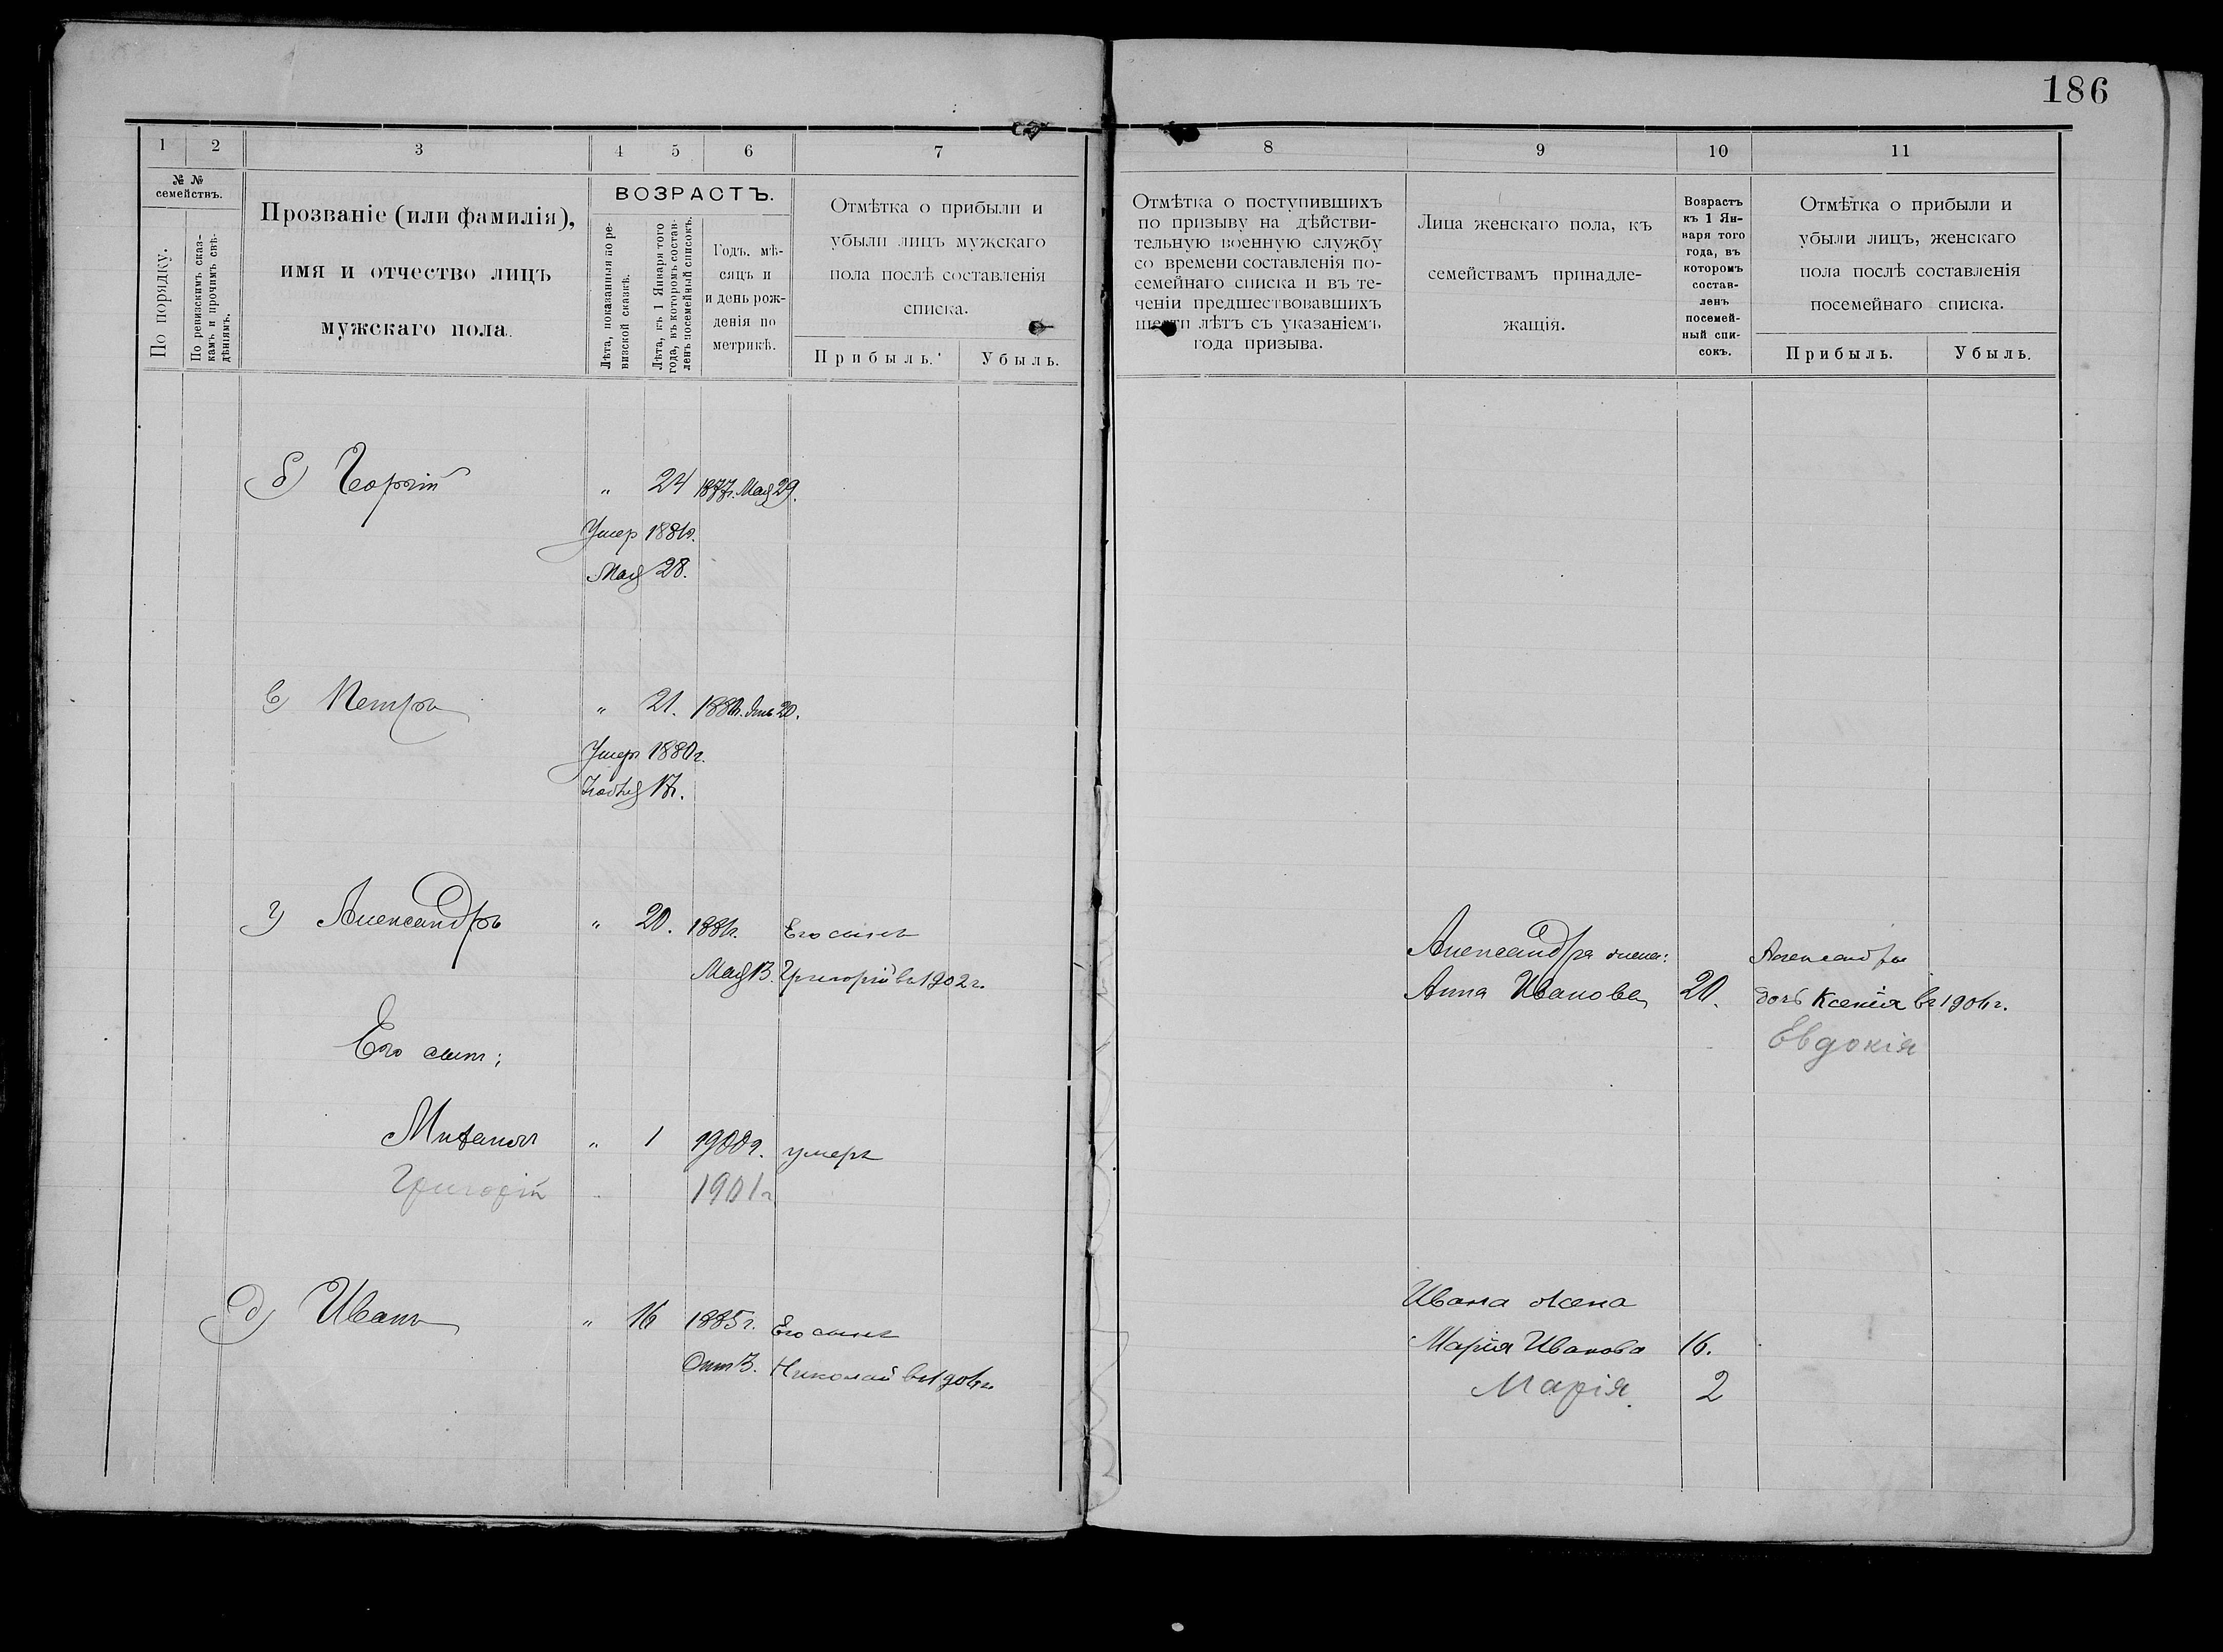 186
1 2 3 4 5 6 7
№ №
семействъ.
По порядку.
По ревизскимъ сказ-
камъ и прочимъ свѣ-
дѣніямъ.
Прозваніе (или фамилія),
имя и отчество лицъ
мужскаго пола.
ВОЗРАСТЪ.
Лѣта, показанныя по ре-
визской сказкѣ.
Лѣта, къ 1 Января того
года, въ которомъ состав-
ленъ посемейный списокъ.
Годъ, мѣ-
сяцъ и
и день рож-
денія по
метрикѣ.
Отмѣтка о прибыли и
убыли лицъ мужскаго
пола послѣ составленія
списка.
Прибыль. Убыль.
б) Георгій " 24 1877г. Мая 29.
Умер 1881г.
Мая 28.
в) Петръ " 21. 1880г. 20.
Умеръ 1880г.
Ноября 17.
г) Александръ " 20. 1881г. Его сынъ
Мая 13. Григорій въ 1902 г.
Его сынъ:
Митрофанъ " 1 1900г. умеръ
Григорій 1901г
д) Иванъ " 16 1885г. Его сынъ
Николай въ 1906г.
8 9 10 11
Отмѣтка о поступившихъ
по призыву на дѣйстви-
тельную военную службу
со времени составленія по-
семейнаго списка и въ те-
ченіи предшествовавшихъ
шести лѣтъ съ указаніемъ
года призыва.
Лица женскаго пола, къ
семействамъ принадле-
жащія.
Возрастъ
къ 1 Ян-
варя того
года, въ
которомъ
состав-
ленъ
посемей-
ный спи-
сокъ.
Отмѣтка о прибыли и
убыли лицъ, женскаго
пола послѣ составленія
посемейнаго списка.
Прибыль. Убыль.
Александра жена: Александра
Анна Иванова 20. дочь Ксенія въ 1906г.
Евдокія
Ивана жена
Марія Иванова 16.
Марія. 2